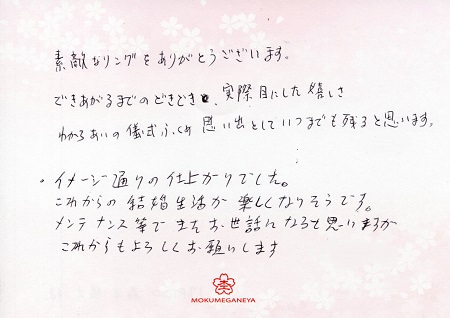 素敵なリングをありがとうございます。
できあがるまでのどきどき、実際目にした嬉しさ
わかちあいの儀式ふくめ 思い出としていつまでも残ると思います。
・イメージ通りの仕上がりでした。
これからの結婚生活が楽しくなりそうです。
メンテナンス等でまたお世話になると思いますが
これからもよろしくお願いします
MOKUMEGANEYA